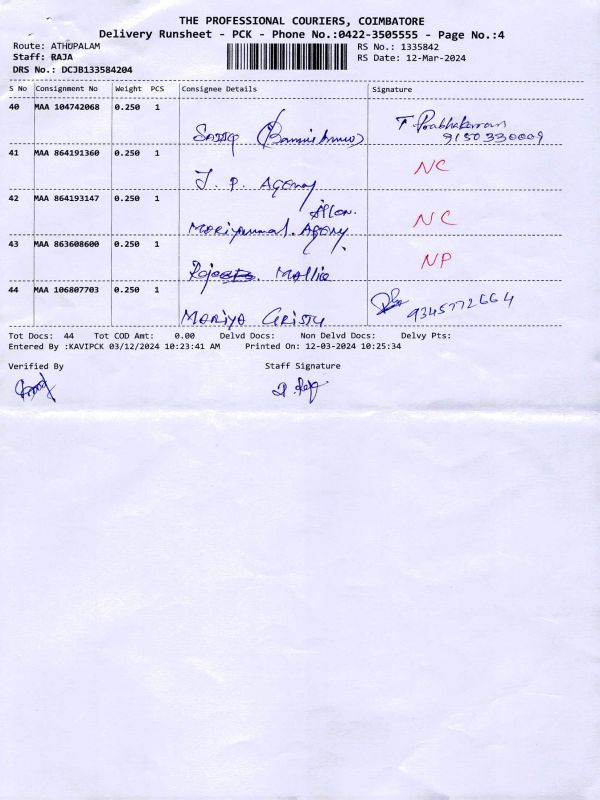 THE PROFESSIONAL COURIERS, COIMBATORE
Delivery Runsheet - PCK - Phone No.:0422-3505555 - Page No.:4
Route: ATHUPALAM RS No.: 1335842
Staff: RAJA RS Date: 12-Mar-2024
DRS No.: DCJB133584204
S No Consignment No Weight PCS Consignee Details Signature
40 MAA 104742068 0.250 1
T. Prabhakaran
9150330009
41 MAA 864191360 0.250 1
NC
J. P. Agency
42 MAA 864193147 0.250 1
NC
Agency
43 MAA 863608600 0.250 1
NP
44 MAA 106807703 0.250 1
9345772664
Mariya Cristy
Tot Docs: 44 Tot COD Amt: 0.00 Delvd Docs: Non Delvd Docs: Delvy Pts:
Entered By :KAVIPCK 03/12/2024 10:23:41 AM Printed On: 12-03-2024 10:25:34
Verified By Staff Signature